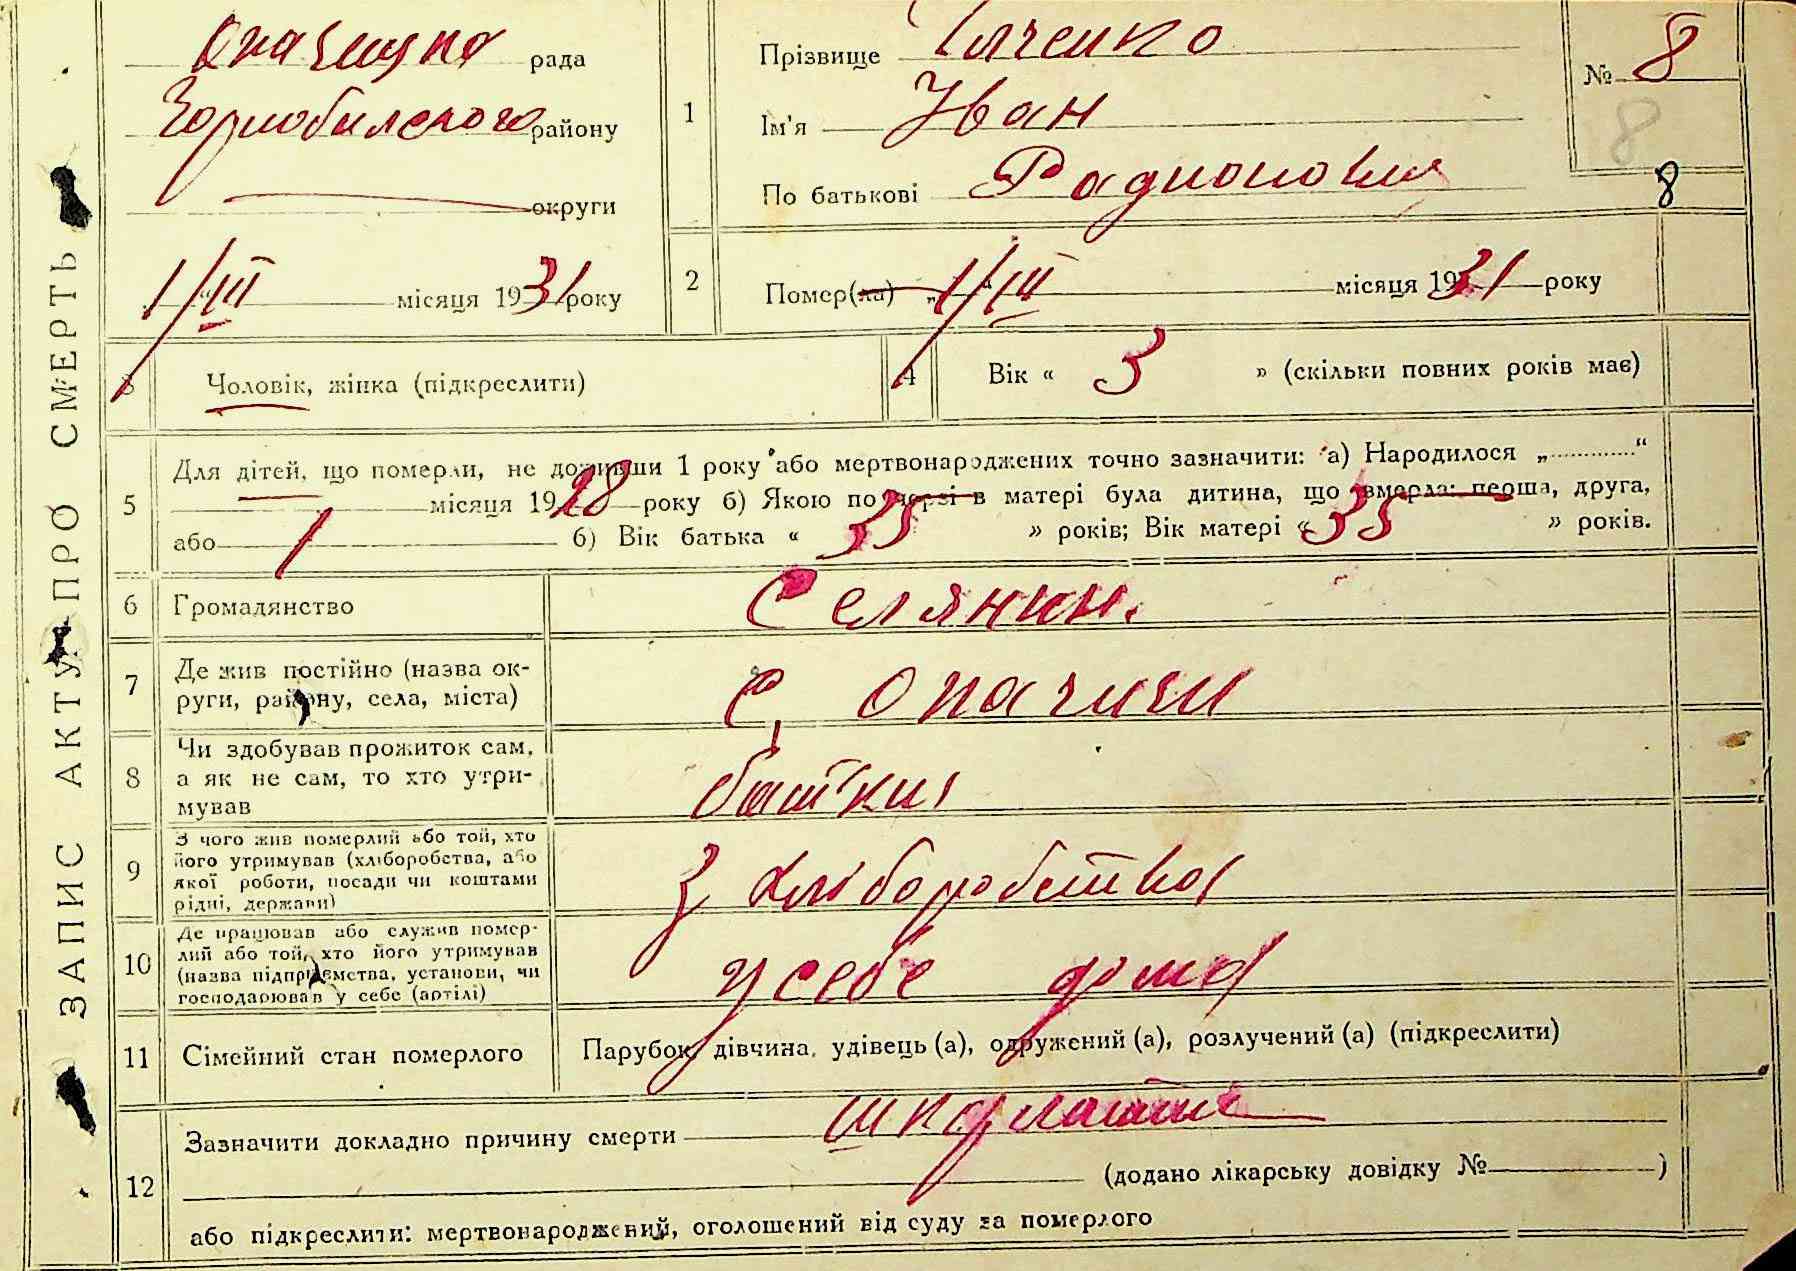 ЗАПИС АКТУ ПРО СМЕРТЬ
Опачицка рада
Чорнобильського району
округи
1/III місяця 1931 року
1
Прізвище
Ім'я Іван
По батькові Радионович
№ 8
8
8
2
Помер(ла) „1/III“ місяця 1931 року
3
Чоловік, жінка (підкреслити)
4
Вік « 3 » (скільки повних років має)
5
Для дітей, що померли, не доживши 1 року або мертвонароджених точно зазначити: а) Народилося „..........“
місяця 1928 року б) Якою по черзі в матері була дитина, що вмерла: перша, друга,
або 1 б) Вік батька « 35 » років; Вік матері « 35 » років.
6
Громадянство
Селянин.
7
Де жив постійно (назва ок-
руги, району, села, міста)
с. Опачичи
8
Чи здобував прожиток сам,
а як не сам, то хто утри-
мував
батьки
9
З чого жив померлий або той, хто
його утримував (хліборобства, або
якої роботи, посади чи коштами
рідні, держави)
З хліборобства
10
Де працював або служив помер-
лий або той, хто його утримував
(назва підприємства, установи, чи
господарював у себе (артілі)
у себе дома
11
Сімейний стан померлого
Парубок, дівчина, удівець (а), одружений (а), розлучений (а) (підкреслити)
12
Зазначити докладно причину смерти шкарлатина
(додано лікарську довідку № )
або підкреслити: мертвонароджений, оголошений від суду за померлого